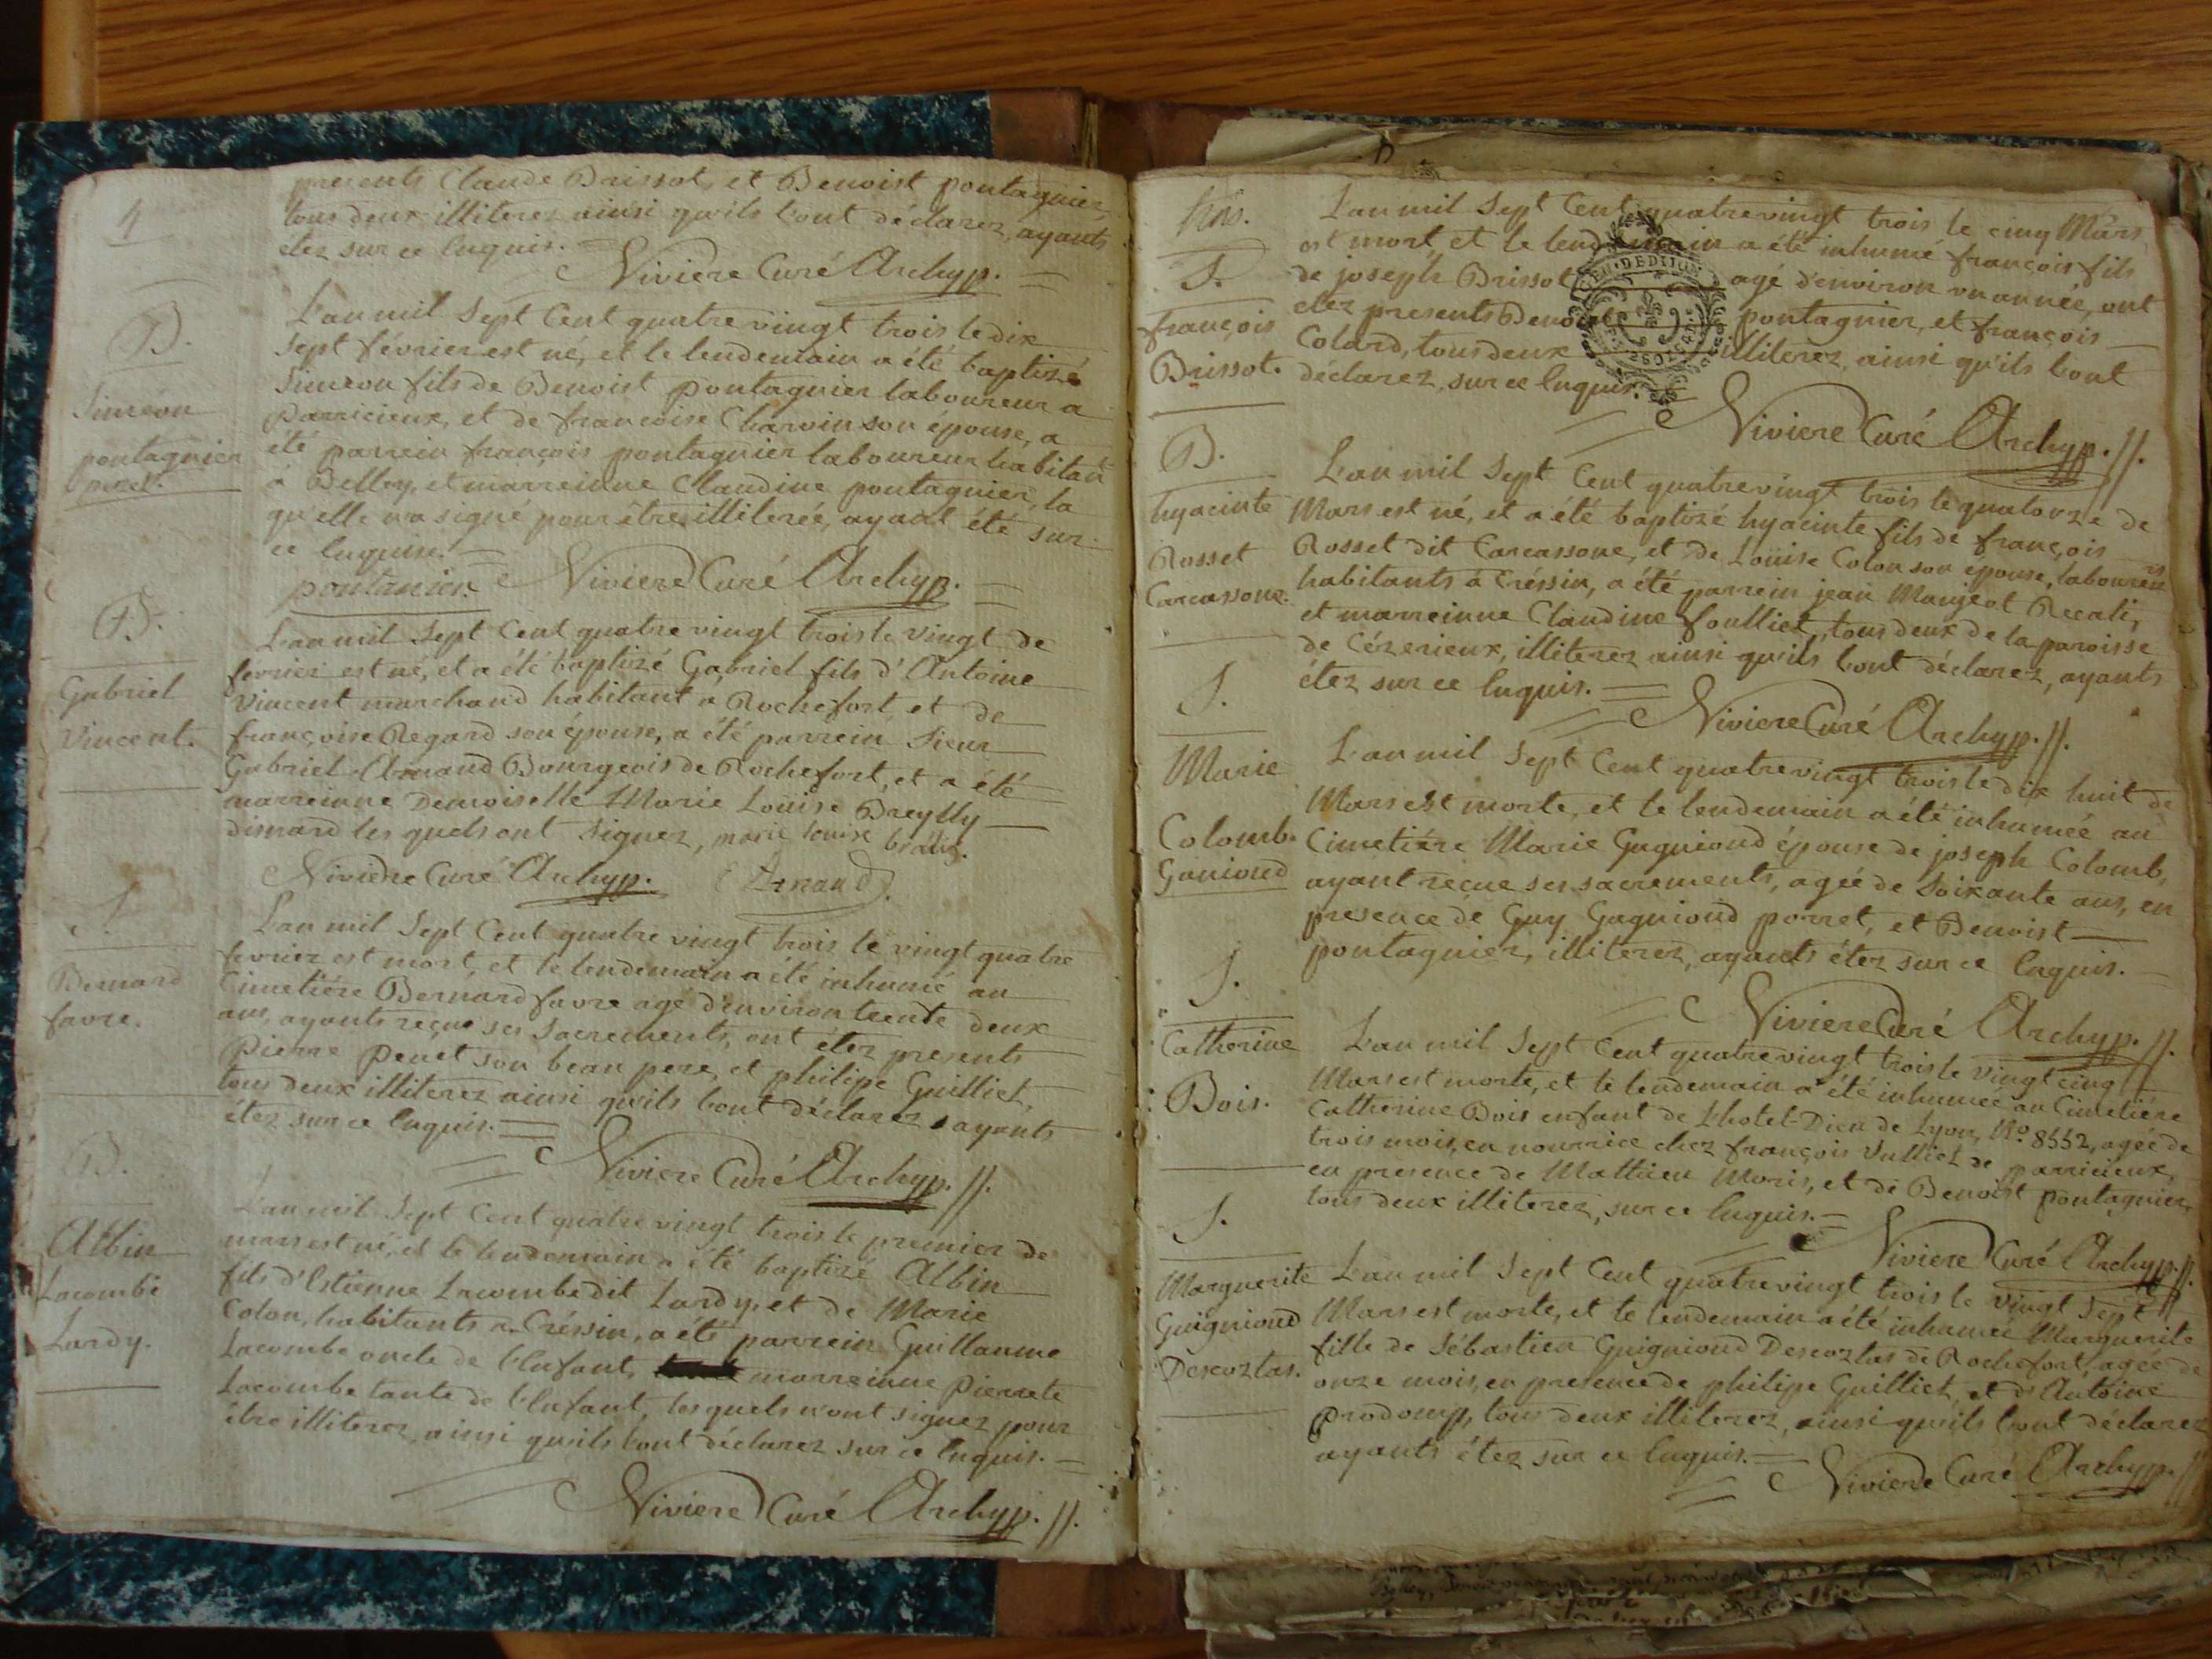 4
presents Claude Brissot, et Benoist pontagnier,
tous deux illiterez ainsi qu'ils l'ont déclarez, ayants
etez sur ce Enquis.
Viviere Curé Archyp.
B.
Siméon
pontagnier
L'an mil Sept Cent quatre vingt trois le dix
Sept février est né, et le lendemain a été baptizé
Siméon fils de Benoist pontagnier laboureur a
parricieux, et de francoise Charvin son épouse, a
été parrein françois pontagnier laboureur habitant
à Belley, et marreinne Claudine pontagnier, la
qu'elle n'a signé pour être illiterée, ayant été sur
ce Enquise.
pontanier. Viviere Curé Archyp.
B.
Gabriel
Vincent.
L'an mil Sept Cent quatre vingt trois le vingt de
fevrier est né, et a été baptizé Gabriel fils d'Antoine
Vincent marchand habitant a Rochefort, et de
françoise Regard son épouse, a été parrein Sieur
Gabriel Arnaud Bourgeois de Rochefort, et a été
marreinne Demoiselle Marie Loüise Breylly
dimard les quels ont Signez, marie louise
Viviere Curé Archyp. Arnaud
S.
Bernard
favre.
L'an mil Sept Cent quatre vingt trois le vingt quatre
fevrier est mort, et le lendemain a été inhumé au
Cimetiére Bernard favre agé d'environ trente deux
ans, ayants reçue ses Sacrements, ont étez presents
Pierre Penet son beau pere, et philipe Guilliet,
tous deux illiterez ainsi qu'ils l'ont déclarez, ayants
étez sur ce Enquis.
Viviere Curé Archyp. //.
B.
Albin
Lacombe
Lardy.
L'an mil Sept Cent quatre vingt trois le premier de
mars est né, et le lendemain a été baptizé Albin
fils d'Estienne Lacombe dit Lardy, et de Marie
Colon, habitants a Créssin, a été parrein Guillaume
Lacombe oncle de l'Enfant, marreinne Pierrete
Lacombe tante de l'Enfant, les quels n'ont signez pour
être illiterez, ainsi qu'ils l'ont déclarez sur ce Enquis.
Viviere Curé Archyp. //.
S.
françois
Brissot.
L'an mil Sept Cent quatre vingt trois le cinq Mars
est mort, et le lendemain a été inhumé françois fils
de joseph Brissot agé d'environ un année, ont
etez presents Benoist pontagnier, et françois
Colard, tous deux illiterez, ainsi qu'ils l'ont
déclarez, sur ce Enquis.
Viviere Curé Archyp. //.
B.
hyacinte
Rosset
Carcassone.
L'an mil Sept Cent quatre vingt trois le quatorze de
Mars est né, et a été baptizé hyacinte fils de françois
Rosset dit Carcassone, et de Loüise Colon son épouse, laboureurs
habitants à Créssin, a été parrein jean Manjeot Recali,
et marreinne Claudine foulliet, tous deux de la paroisse
de Cézerieux, illiterez ainsi qu'ils l'ont déclarez, ayants
étez sur ce Enquis.
Viviere Curé Archyp. //.
S.
Marie
Colomb.
Ganioud
L'an mil Sept Cent quatre vingt trois le dix huit de
Mars est morte, et le lendemain a été inhumée au
Cimetiére Marie Guguioud épouse de joseph Colomb,
ayant reçue ses sacrements, agée de Soixante ans, en
presence de Guy Gugnioud porret, et Benoist
pontagnier, illiterez, ayants étez sur ce Enquis.
Viviere Curé Archyp. //.
S.
Catherine
Bois.
L'an mil Sept Cent quatre vingt trois le vingt cinq
Mars est morte, et le lendemain a été inhumée au Cimetiére
Catherine Bois enfant de l'hotel-Dieu de Lyon, No. 8552, agée de
trois mois, en nourrice chez françois Vulliet de parricieux,
en presence de Mathieu Moris, et de Benoist pontagnier,
tous deux illiterez, sur ce Enquis.
Viviere Curé Archyp. //.
S.
Marguerite
Guignioud
Descoztas.
L'an mil Sept Cent quatre vingt trois le vingt Sept
Mars est morte, et le lendemain a été inhumée Marguerite
fille de Sébastien Guignioud Descoztas de Rochefort, agée de
onze mois, en presence de philipe Guilliet, et d'Antoine
prodomp, tous deux illiterez, ainsi qu'ils l'ont déclarez
ayants étez sur ce Enquis.
Viviere Curé Archyp. //.